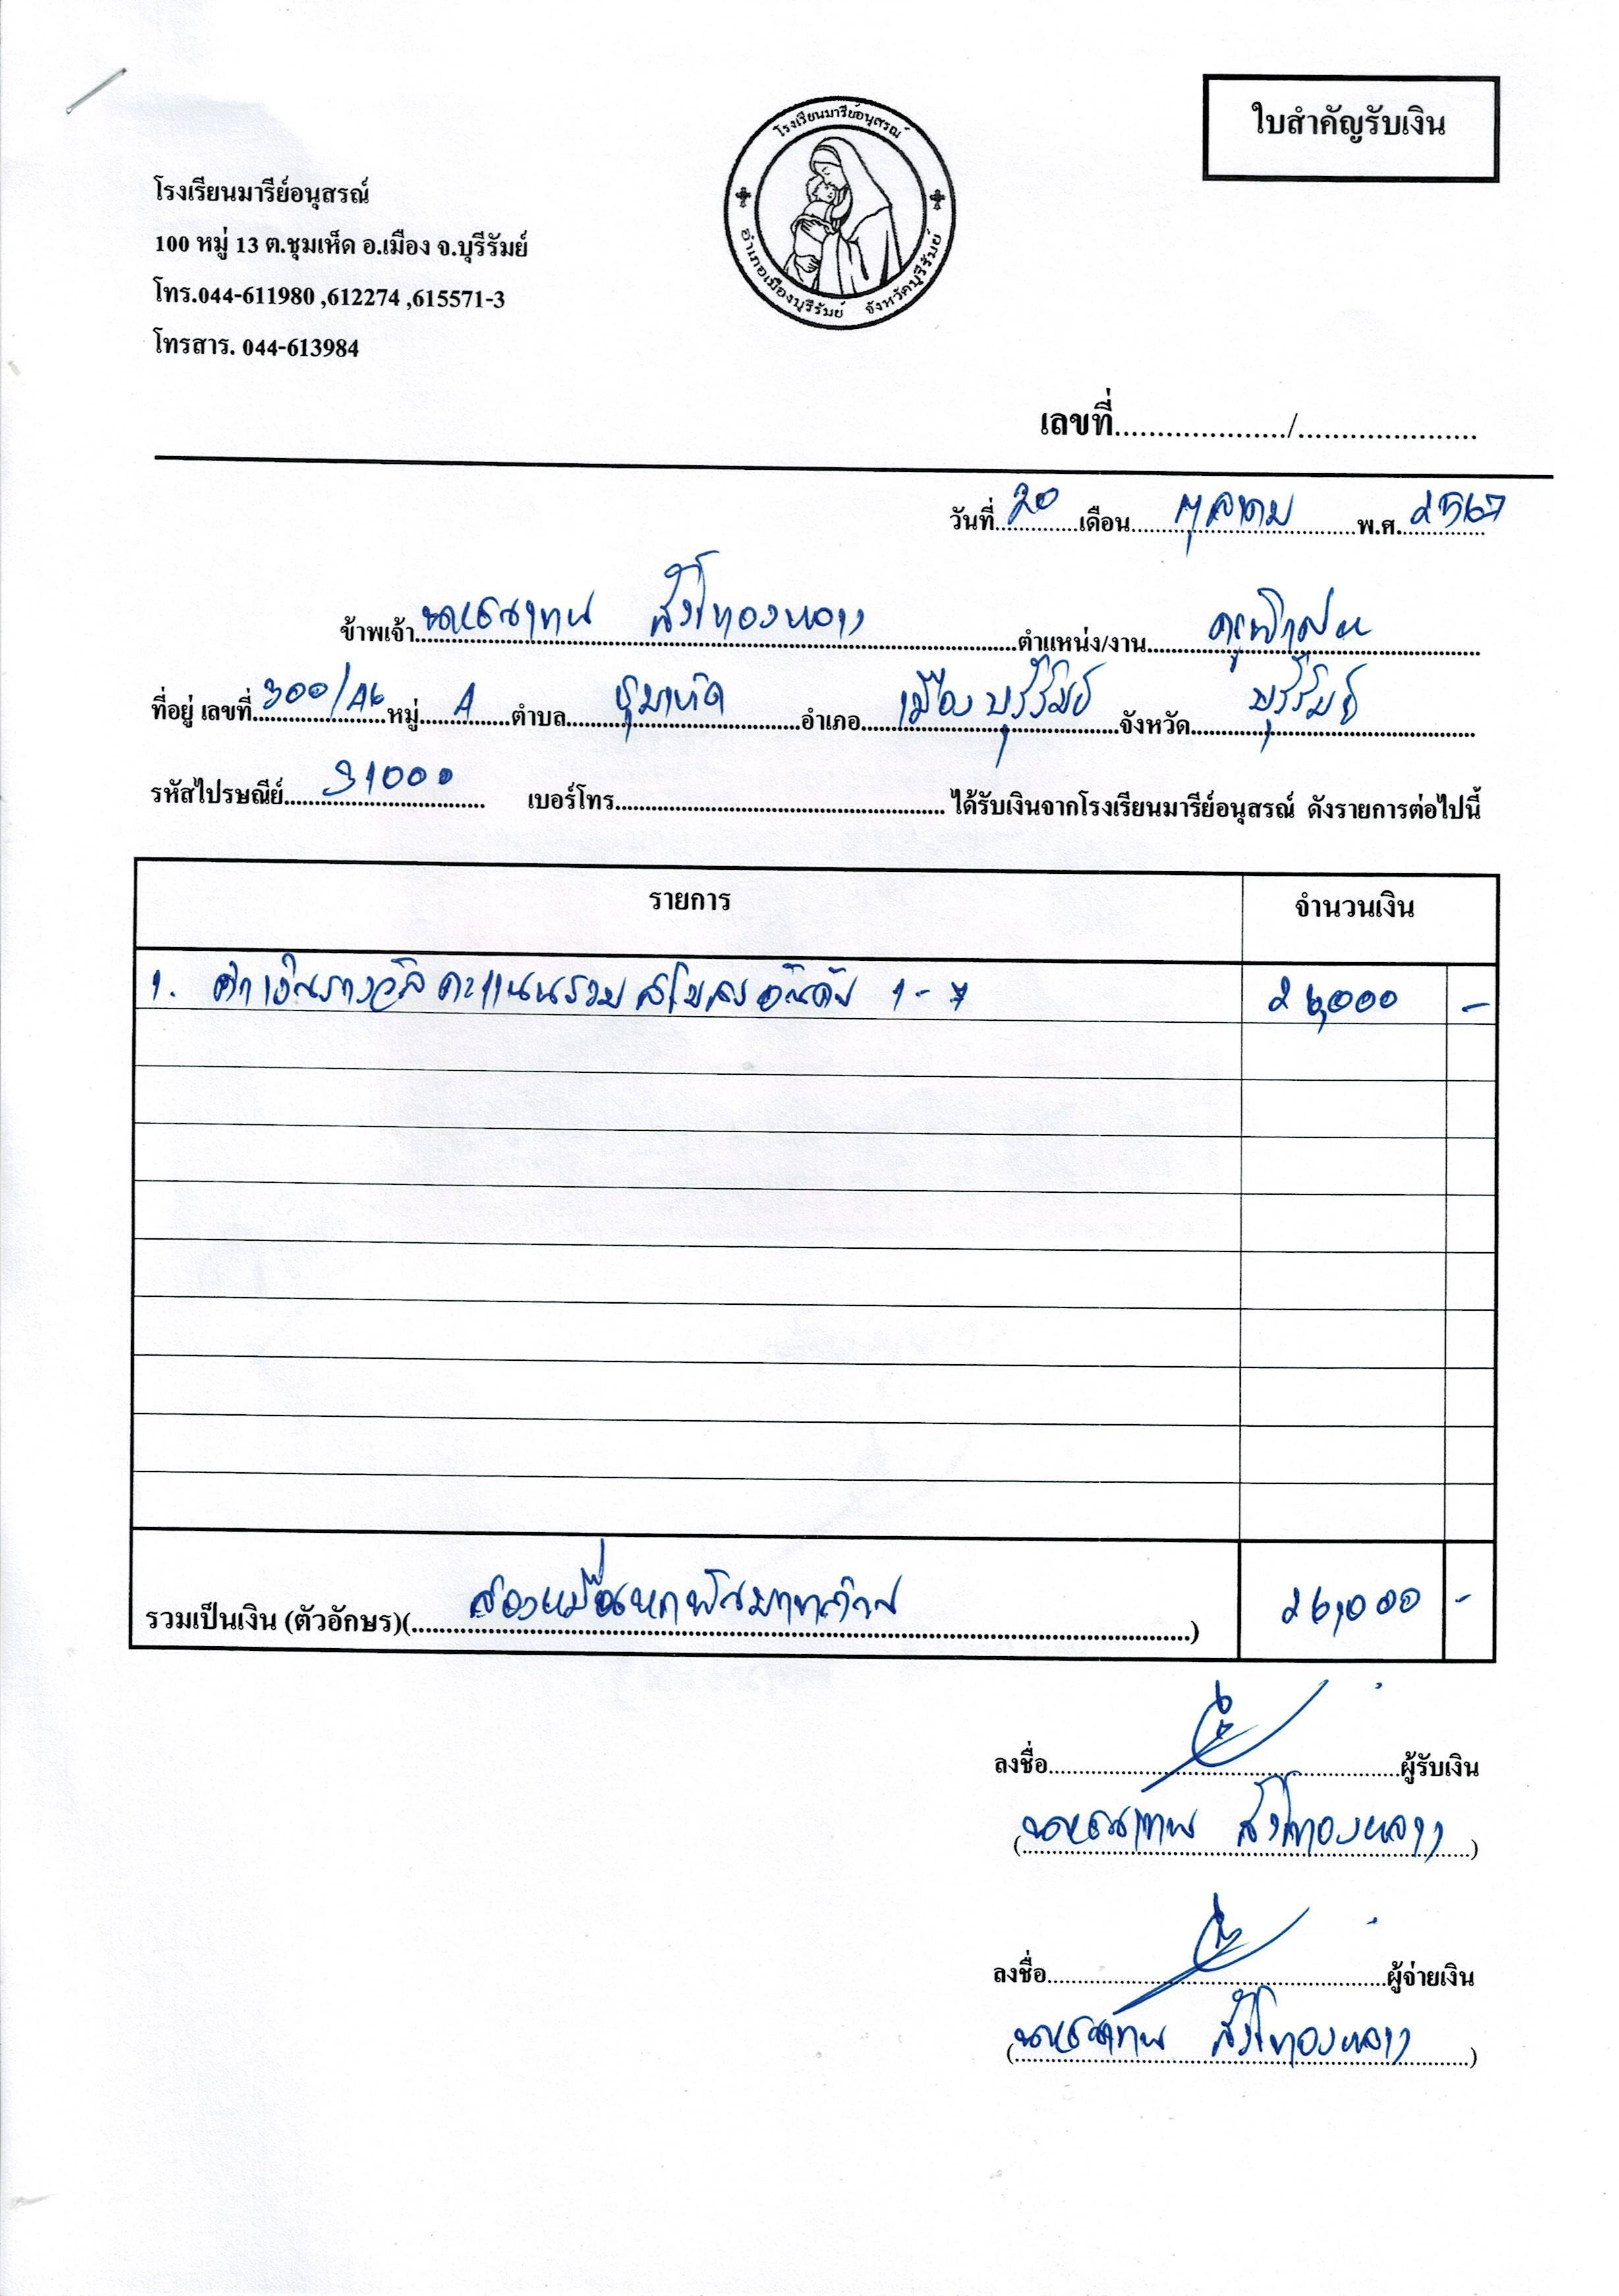 ใบสำคัญรับเงิน
โรงเรียนมารีย์อนุสรณ์
อำเภอเมืองบุรีรัมย์ จังหวัดบุรีรัมย์
โรงเรียนมารีย์อนุสรณ์
100 หมู่ 13 ต.ชุมเห็ด อ.เมือง จ.บุรีรัมย์
โทร.044-611980 ,612274 ,615571-3
โทรสาร. 044-613984
เลขที่..................../.....................
วันที่ 20 เดือน ตุลาคม พ.ศ. 2567
ข้าพเจ้า ตำแหน่ง/งาน
ที่อยู่ เลขที่ 300/ หมู่ ตำบล ชุมเห็ด อำเภอ เมืองบุรีรัมย์ จังหวัด บุรีรัมย์
รหัสไปรษณีย์ 31000 เบอร์โทร.................... ได้รับเงินจากโรงเรียนมารีย์อนุสรณ์ ดังรายการต่อไปนี้
รายการ จำนวนเงิน
1. ค่าเงินรางวัล คะแนนรวม สโมสร อันดับ 1 - 7 26,000 -
รวมเป็นเงิน (ตัวอักษร)( สองหมื่นหกพันบาทถ้วน ) 26,000 -
ลงชื่อ ผู้รับเงิน
ลงชื่อ ผู้จ่ายเงิน